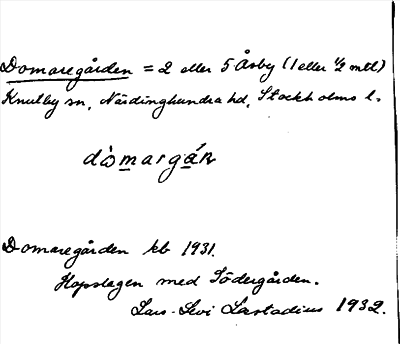 Domaregården = 2 eller 5 Åsby (1 eller ½ mtl)
Knutby sn, Närdinghundra hd, Stockholms l.
dòmargáṇ
Domaregården kb 1931.
Hopslagen med Södergården.
Lars-Levi Læstadius 1932.